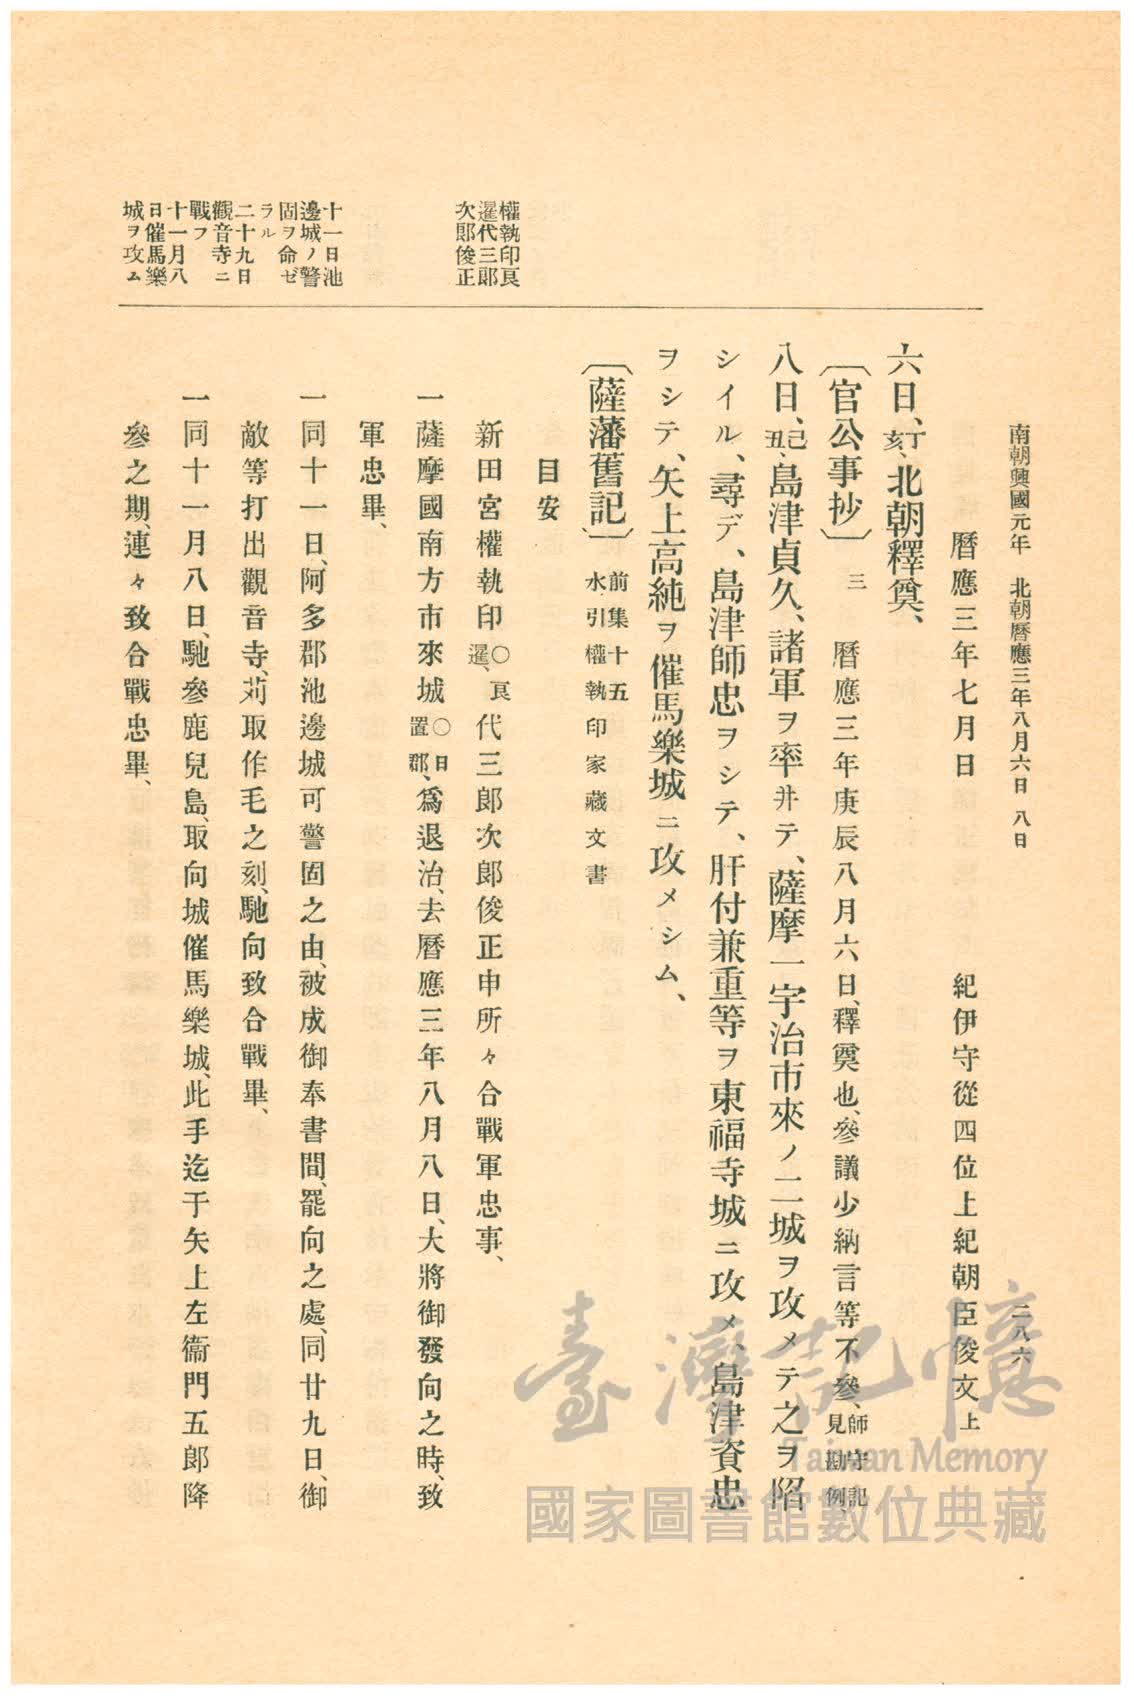 南朝興國元年　北朝曆應三年八月六日　八日　二八六
曆應三年七月日　紀伊守從四位上紀朝臣俊文上
六日、丁亥、北朝釋奠、
〔官公事抄〕三　曆應三年庚辰八月六日、釋奠也、參議少納言等不參、師守記見勘例、
八日、己丑、島津貞久、諸軍ヲ率井テ、薩摩一宇治市來ノ二城ヲ攻メテ之ヲ陷
シイル、尋デ、島津師忠ヲシテ、肝付兼重等ヲ東福寺城ニ攻メ、島津資忠
ヲシテ、矢上高純ヲ催馬樂城ニ攻メシム、
〔薩藩舊記〕前集十五　水引權執印家藏文書
目安
新田宮權執印〇良暹、代三郎次郎俊正申所々合戰軍忠事、
一薩摩國南方市來城〇日置郡、爲退治、去曆應三年八月八日、大將御發向之時、致
軍忠畢、
一同十一日、阿多郡池邊城可警固之由、被成御奉書間、罷向之處、同廿九日、御
敵等打出觀音寺、苅取作毛之刻、馳向致合戰畢、
一同十一月八日、馳參鹿兒島、取向城催馬樂城、此手迄于矢上左衞門五郎降
參之期、連々致合戰忠畢、
權執印良
暹代三郎
次郎俊正
十一日池
邊城ノ警
固ヲ命ゼ
ラル
二十九日
觀音寺ニ
戰フ
十一月八
日催馬樂
城ヲ攻ム
臺灣記憶
Taiwan Memory
國家圖書館數位典藏